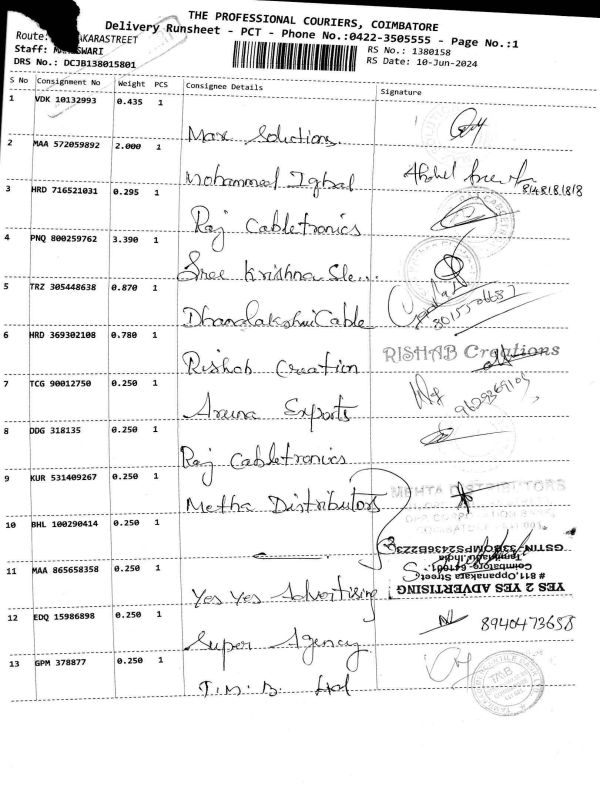 THE PROFESSIONAL COURIERS, COIMBATORE
Delivery Runsheet - PCT - Phone No.:0422-3505555 - Page No.:1
Route: AKARASTREET
Staff: SWARI
RS No.: 1380158
DRS No.: DCJB138015801
RS Date: 10-Jun-2024
S No Consignment No Weight PCS Consignee Details Signature
1 VDK 10132993 0.435 1
Max Solutions
2 MAA 572059892 2.000 1
Mohammed Iqbal
3 HRD 716521031 0.295 1
Raj Cabletronics
4 PNQ 800259762 3.390 1
Sree Krishna Ele...
5 TRZ 305448638 0.870 1
Dhanalakshmi Cable
6 HRD 369302108 0.780 1
RISHAB Creations
Rishab Creation
7 TCG 90012750 0.250 1
9629369109
Aruna Exports
8 DDG 318135 0.250 1
Raj Cabletronics
9 KUR 531409267 0.250 1
MEHTA DISTRIBUTORS
Metha Distributors
10 BHL 100290414 0.250 1
Tamilnadu.India.
Coimbatore- 641001.
11 MAA 865658358 0.250 1
# 811,Oppanakara Street
YES 2 YES ADVERTISING
Yes Yes Advertising
12 EDQ 15986898 0.250 1
8940473658
Super Agency
13 GPM 378877 0.250 1
T.M.B. Ltd
TMB